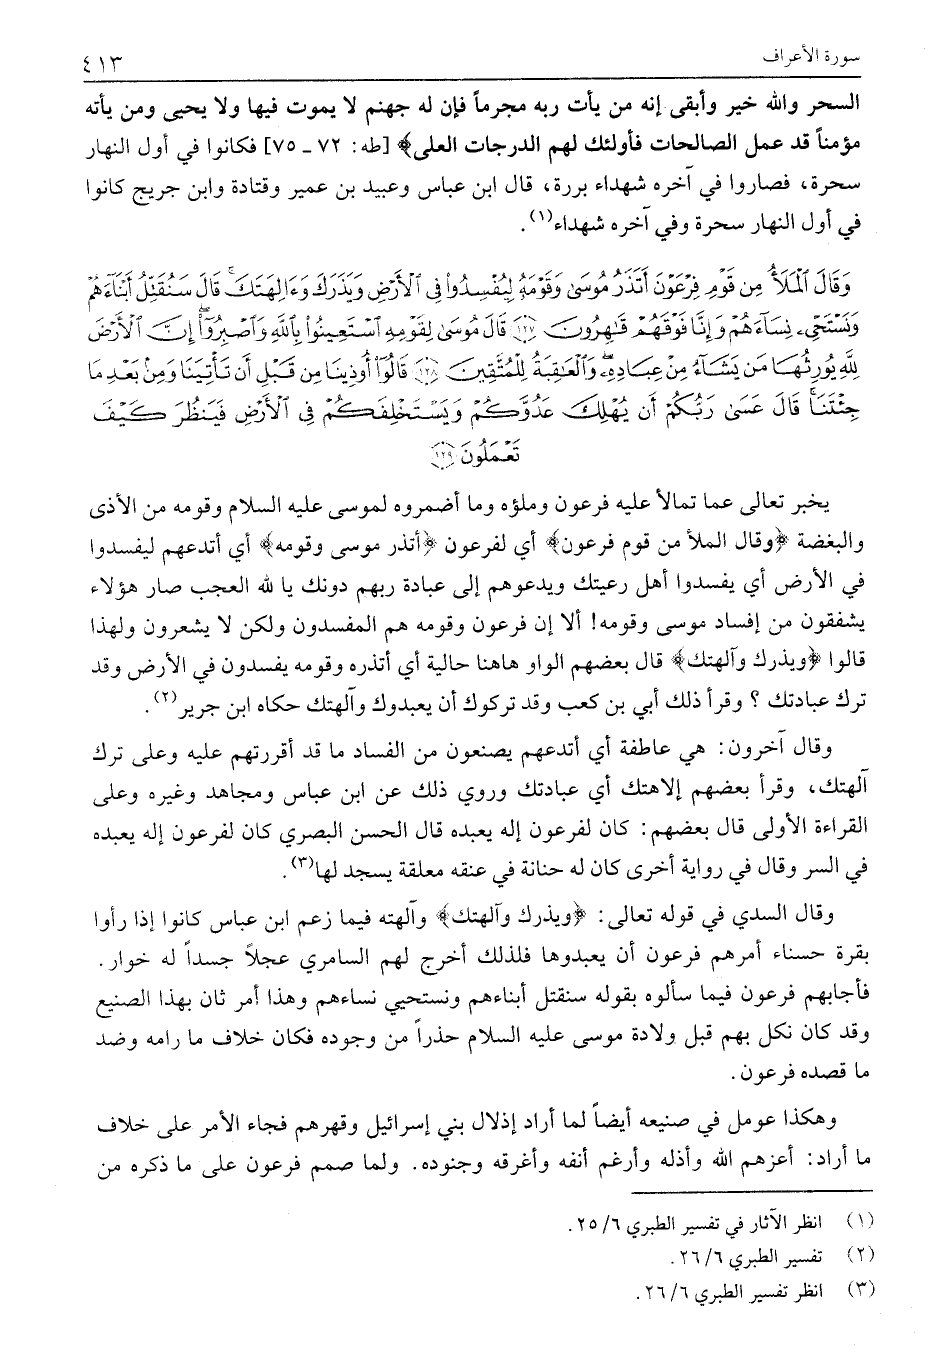 سورة الأعراف
٤١٣
السحر والله خير وأبقى إنه من يأت ربه مجرماً فإن له جهنم لا يموت فيها ولا يحيى ومن يأته
مؤمناً قد عمل الصالحات فأولئك لهم الدرجات العلى﴾ [طه: ٧٢ ـ ٧٥] فكانوا في أول النهار
سحرة، فصاروا في آخره شهداء بررة، قال ابن عباس وعبيد بن عمير وقتادة وابن جريج كانوا
في أول النهار سحرة وفي آخره شهداء(١).
وَقَالَ ٱلْمَلَأُ مِن قَوْمِ فِرْعَوْنَ أَتَذَرُ مُوسَىٰ وَقَوْمَهُۥ لِيُفْسِدُوا۟ فِى ٱلْأَرْضِ وَيَذَرَكَ وَءَالِهَتَكَ ۚ قَالَ سَنُقَتِّلُ أَبْنَآءَهُمْ
وَنَسْتَحْىِۦ نِسَآءَهُمْ وَإِنَّا فَوْقَهُمْ قَٰهِرُونَ ﴿١٢٧﴾ قَالَ مُوسَىٰ لِقَوْمِهِ ٱسْتَعِينُوا۟ بِٱللَّهِ وَٱصْبِرُوٓا۟ ۖ إِنَّ ٱلْأَرْضَ
لِلَّهِ يُورِثُهَا مَن يَشَآءُ مِنْ عِبَادِهِۦ ۖ وَٱلْعَٰقِبَةُ لِلْمُتَّقِينَ ﴿١٢٨﴾ قَالُوٓا۟ أُوذِينَا مِن قَبْلِ أَن تَأْتِيَنَا وَمِنۢ بَعْدِ مَا
جِئْتَنَا ۚ قَالَ عَسَىٰ رَبُّكُمْ أَن يُهْلِكَ عَدُوَّكُمْ وَيَسْتَخْلِفَكُمْ فِى ٱلْأَرْضِ فَيَنظُرَ كَيْفَ
تَعْمَلُونَ ﴿١٢٩﴾
يخبر تعالى عما تمالأ عليه فرعون وملؤه وما أضمروه لموسى عليه السلام وقومه من الأذى
والبغضة ﴿وقال الملأ من قوم فرعون﴾ أي لفرعون ﴿أتذر موسى وقومه﴾ أي أتدعهم ليفسدوا
في الأرض أي يفسدوا أهل رعيتك ويدعوهم إلى عبادة ربهم دونك يا لله العجب صار هؤلاء
يشفقون من إفساد موسى وقومه! ألا إن فرعون وقومه هم المفسدون ولكن لا يشعرون ولهذا
قالوا ﴿ويذرك وآلهتك﴾ قال بعضهم الواو هاهنا حالية أي أتذره وقومه يفسدون في الأرض وقد
ترك عبادتك ؟ وقرأ ذلك أبي بن كعب وقد تركوك أن يعبدوك وآلهتك حكاه ابن جرير(٢).
وقال آخرون: هي عاطفة أي أتدعهم يصنعون من الفساد ما قد أقررتهم عليه وعلى ترك
آلهتك، وقرأ بعضهم إلاهتك أي عبادتك وروي ذلك عن ابن عباس ومجاهد وغيره وعلى
القراءة الأولى قال بعضهم: كان لفرعون إله يعبده قال الحسن البصري كان لفرعون إله يعبده
في السر وقال في رواية أخرى كان له حنانة في عنقه معلقة يسجد لها(٣).
وقال السدي في قوله تعالى: ﴿ويذرك وآلهتك﴾ وآلهته فيما زعم ابن عباس كانوا إذا رأوا
بقرة حسناء أمرهم فرعون أن يعبدوها فلذلك أخرج لهم السامري عجلاً جسداً له خوار.
فأجابهم فرعون فيما سألوه بقوله سنقتل أبناءهم ونستحيي نساءهم وهذا أمر ثان بهذا الصنيع
وقد كان نكل بهم قبل ولادة موسى عليه السلام حذراً من وجوده فكان خلاف ما رامه وضد
ما قصده فرعون.
وهكذا عومل في صنيعه أيضاً لما أراد إذلال بني إسرائيل وقهرهم فجاء الأمر على خلاف
ما أراد: أعزهم الله وأذله وأرغم أنفه وأغرقه وجنوده. ولما صمم فرعون على ما ذكره من
(١) انظر الآثار في تفسير الطبري ٦/ ٢٥.
(٢) تفسير الطبري ٦/ ٢٦.
(٣) انظر تفسير الطبري ٦/ ٢٦.